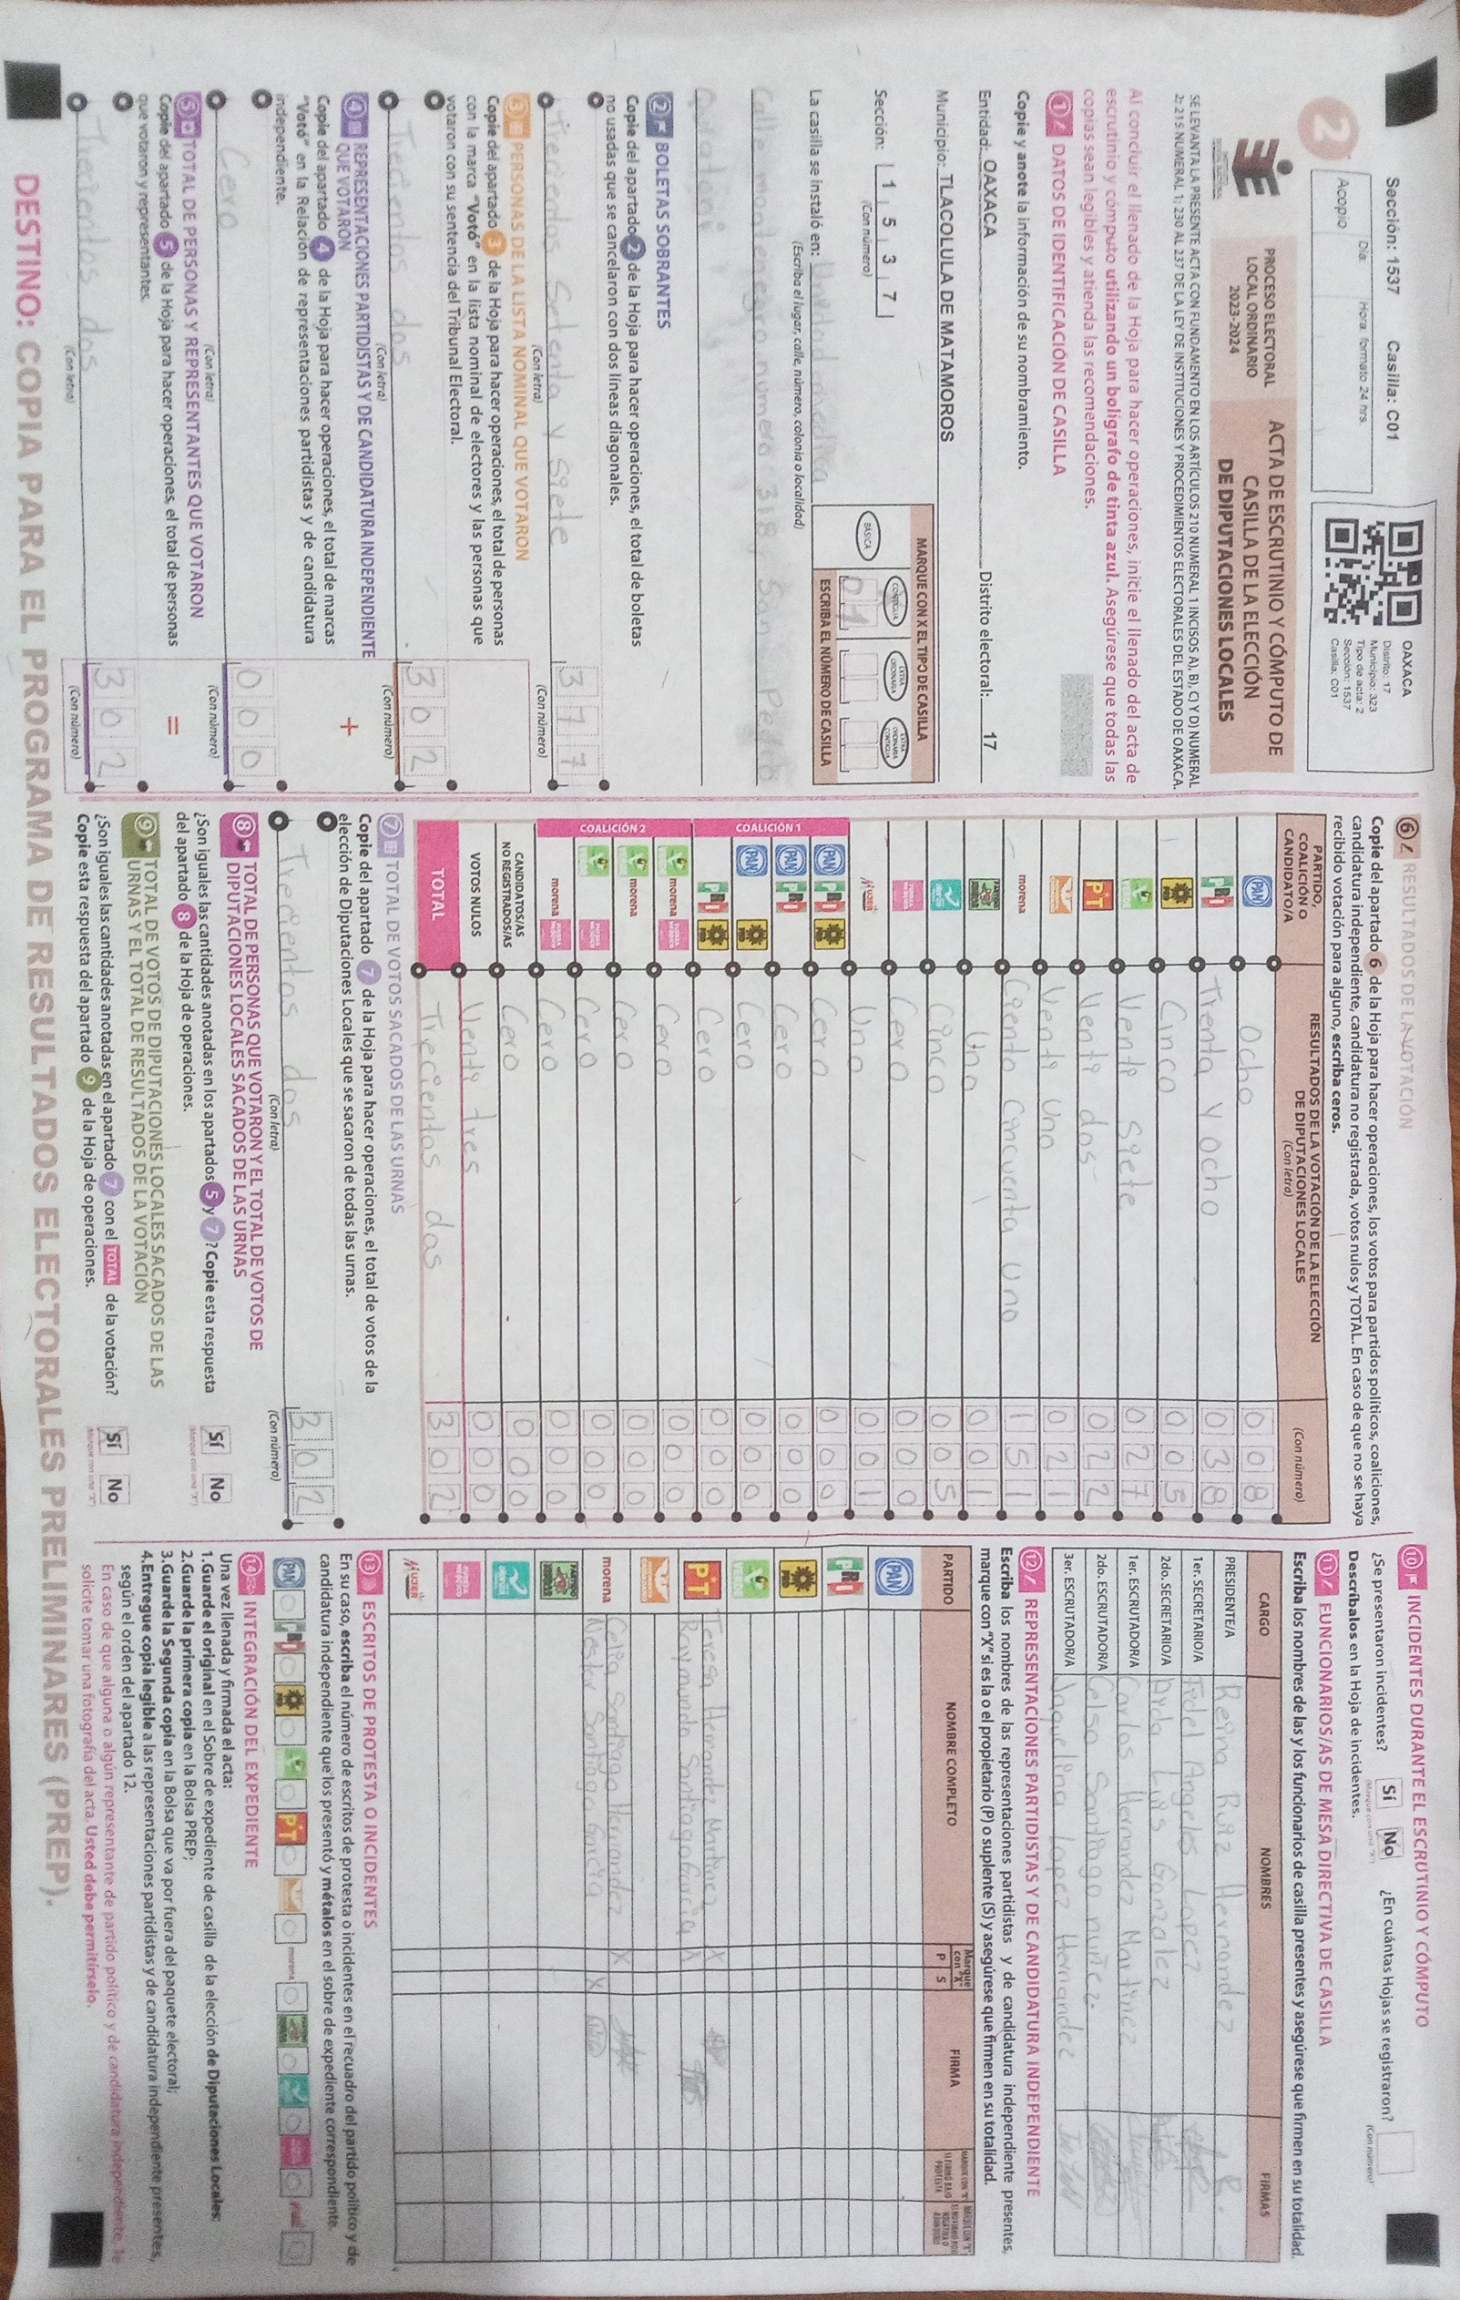 Sección: 1537 Casilla: C01
Día: Hora: formato 24 hrs.
Acopio
OAXACA
Distrito: 17
Municipio: 323
Tipo de acta: 2
Sección: 1537
Casilla: C01
2
PROCESO ELECTORAL
LOCAL ORDINARIO
2023-2024
ACTA DE ESCRUTINIO Y CÓMPUTO DE
CASILLA DE LA ELECCIÓN
DE DIPUTACIONES LOCALES
SE LEVANTA LA PRESENTE ACTA CON FUNDAMENTO EN LOS ARTÍCULOS 210 NUMERAL 1 INCISOS A), B), C) Y D) NUMERAL
2; 215 NUMERAL 1; 230 AL 237 DE LA LEY DE INSTITUCIONES Y PROCEDIMIENTOS ELECTORALES DEL ESTADO DE OAXACA.
Al concluir el llenado de la Hoja para hacer operaciones, inicie el llenado del acta de
escrutinio y cómputo utilizando un bolígrafo de tinta azul. Asegúrese que todas las
copias sean legibles y atienda las recomendaciones.
1 DATOS DE IDENTIFICACIÓN DE CASILLA
Copie y anote la información de su nombramiento.
Entidad: OAXACA Distrito electoral: 17
Municipio: TLACOLULA DE MATAMOROS
Sección: 1 5 3 7
(Con número)
MARQUE CON X EL TIPO DE CASILLA
BÁSICA
ESCRIBA EL NÚMERO DE CASILLA
01
La casilla se instaló en: Unidad médica
(Escriba el lugar, calle, número, colonia o localidad)
2 BOLETAS SOBRANTES
Copie del apartado 2 de la Hoja para hacer operaciones, el total de boletas
no usadas que se cancelaron con dos líneas diagonales.
Trecientos Setenta y Siete 377
(Con letra) (Con número)
3 PERSONAS DE LA LISTA NOMINAL QUE VOTARON
Copie del apartado 3 de la Hoja para hacer operaciones, el total de personas
con la marca "Votó" en la lista nominal de electores y las personas que
votaron con su sentencia del Tribunal Electoral.
Trecientos dos 302
(Con letra) (Con número)
4 REPRESENTACIONES PARTIDISTAS Y DE CANDIDATURA INDEPENDIENTE
QUE VOTARON
Copie del apartado 4 de la Hoja para hacer operaciones, el total de marcas
"Votó" en la Relación de representaciones partidistas y de candidatura
independiente.
+
Cero 000
(Con letra) (Con número)
5 TOTAL DE PERSONAS Y REPRESENTANTES QUE VOTARON
Copie del apartado 5 de la Hoja para hacer operaciones, el total de personas
que votaron y representantes.
=
Trecientos dos 302
(Con letra) (Con número)
6 RESULTADOS DE LA VOTACIÓN
Copie del apartado 6 de la Hoja para hacer operaciones, los votos para partidos políticos, coaliciones,
candidatura independiente, candidatura no registrada, votos nulos y TOTAL. En caso de que no se haya
recibido votación para alguno, escriba ceros.
PARTIDO, COALICIÓN O CANDIDATO/A
RESULTADOS DE LA VOTACIÓN DE LA ELECCIÓN DE DIPUTACIONES LOCALES (Con letra)
(Con número)
PAN Ocho 008
PRI Trenta y Ocho 038
PRD Cinco 005
Venti siete 027
PT Venti dos 022
Venti uno 021
morena Ciento Cincuenta uno 151
Uno 001
Cinco 005
Cero 000
MUJER Uno 001
COALICIÓN 1
PAN PRI PRD Cero 000
PAN PRI Cero 000
PAN PRD Cero 000
PRI PRD Cero 000
COALICIÓN 2
morena Cero 000
morena Cero 000
Cero 000
morena Cero 000
CANDIDATOS/AS NO REGISTRADOS/AS Cero 000
VOTOS NULOS Venti tres 000
TOTAL Trecientos dos 302
7 TOTAL DE VOTOS SACADOS DE LAS URNAS
Copie del apartado 7 de la Hoja para hacer operaciones, el total de votos de la
elección de Diputaciones Locales que se sacaron de todas las urnas.
Trecientos dos 302
(Con letra) (Con número)
8 TOTAL DE PERSONAS QUE VOTARON Y EL TOTAL DE VOTOS DE
DIPUTACIONES LOCALES SACADOS DE LAS URNAS
¿Son iguales las cantidades anotadas en los apartados 5 y 7? Copie esta respuesta
del apartado 8 de la Hoja de operaciones.
Sí No
9 TOTAL DE VOTOS DE DIPUTACIONES LOCALES SACADOS DE LAS
URNAS Y EL TOTAL DE RESULTADOS DE LA VOTACIÓN
¿Son iguales las cantidades anotadas en el apartado 7 con el TOTAL de la votación?
Copie esta respuesta del apartado 9 de la Hoja de operaciones.
Sí No
10 INCIDENTES DURANTE EL ESCRUTINIO Y CÓMPUTO
¿Se presentaron incidentes? Sí No ¿En cuántas Hojas se registraron?
(Con número)
Descríbalos en la Hoja de incidentes.
11 FUNCIONARIOS/AS DE MESA DIRECTIVA DE CASILLA
Escriba los nombres de las y los funcionarios de casilla presentes y asegúrese que firmen en su totalidad.
CARGO NOMBRES FIRMAS
PRESIDENTE/A Reina Ruiz Hernandez
1er. SECRETARIO/A Fidel Angeles Lopez
2do. SECRETARIO/A Ayda Luis Gonzalez
1er. ESCRUTADOR/A Carlos Hernandez Martinez
2do. ESCRUTADOR/A Celso Santiago nuñez
3er. ESCRUTADOR/A Jaquelina Lopez Hernandez
12 REPRESENTACIONES PARTIDISTAS Y DE CANDIDATURA INDEPENDIENTE
Escriba los nombres de las representaciones partidistas y de candidatura independiente presentes,
marque con "X" si es la o el propietario (P) o suplente (S) y asegúrese que firmen en su totalidad.
PARTIDO NOMBRE COMPLETO Marque con "X" P S FIRMA
PAN
PRI
PRD
PT Teresa Hernandez Martinez X
Raymundo Santiago Garcia X
morena Celia Santiago Hernandez X
Nestor Santiago Garcia X
MUJER
13 ESCRITOS DE PROTESTA O INCIDENTES
En su caso, escriba el número de escritos de protesta o incidentes en el recuadro del partido político y de
candidatura independiente que los presentó y métalos en el sobre de expediente correspondiente.
PAN PRI PRD PT morena
14 INTEGRACIÓN DEL EXPEDIENTE
Una vez llenada y firmada el acta:
1.Guarde el original en el Sobre de expediente de casilla de la elección de Diputaciones Locales;
2.Guarde la primera copia en la Bolsa PREP;
3.Guarde la Segunda copia en la Bolsa que va por fuera del paquete electoral;
4.Entregue copia legible a las representaciones partidistas y de candidatura independiente presentes,
según el orden del apartado 12.
En caso de que alguna o algún representante de partido político y de candidatura independiente, le
solicite tomar una fotografía del acta. Usted debe permitírselo.
DESTINO: COPIA PARA EL PROGRAMA DE RESULTADOS ELECTORALES PRELIMINARES (PREP).